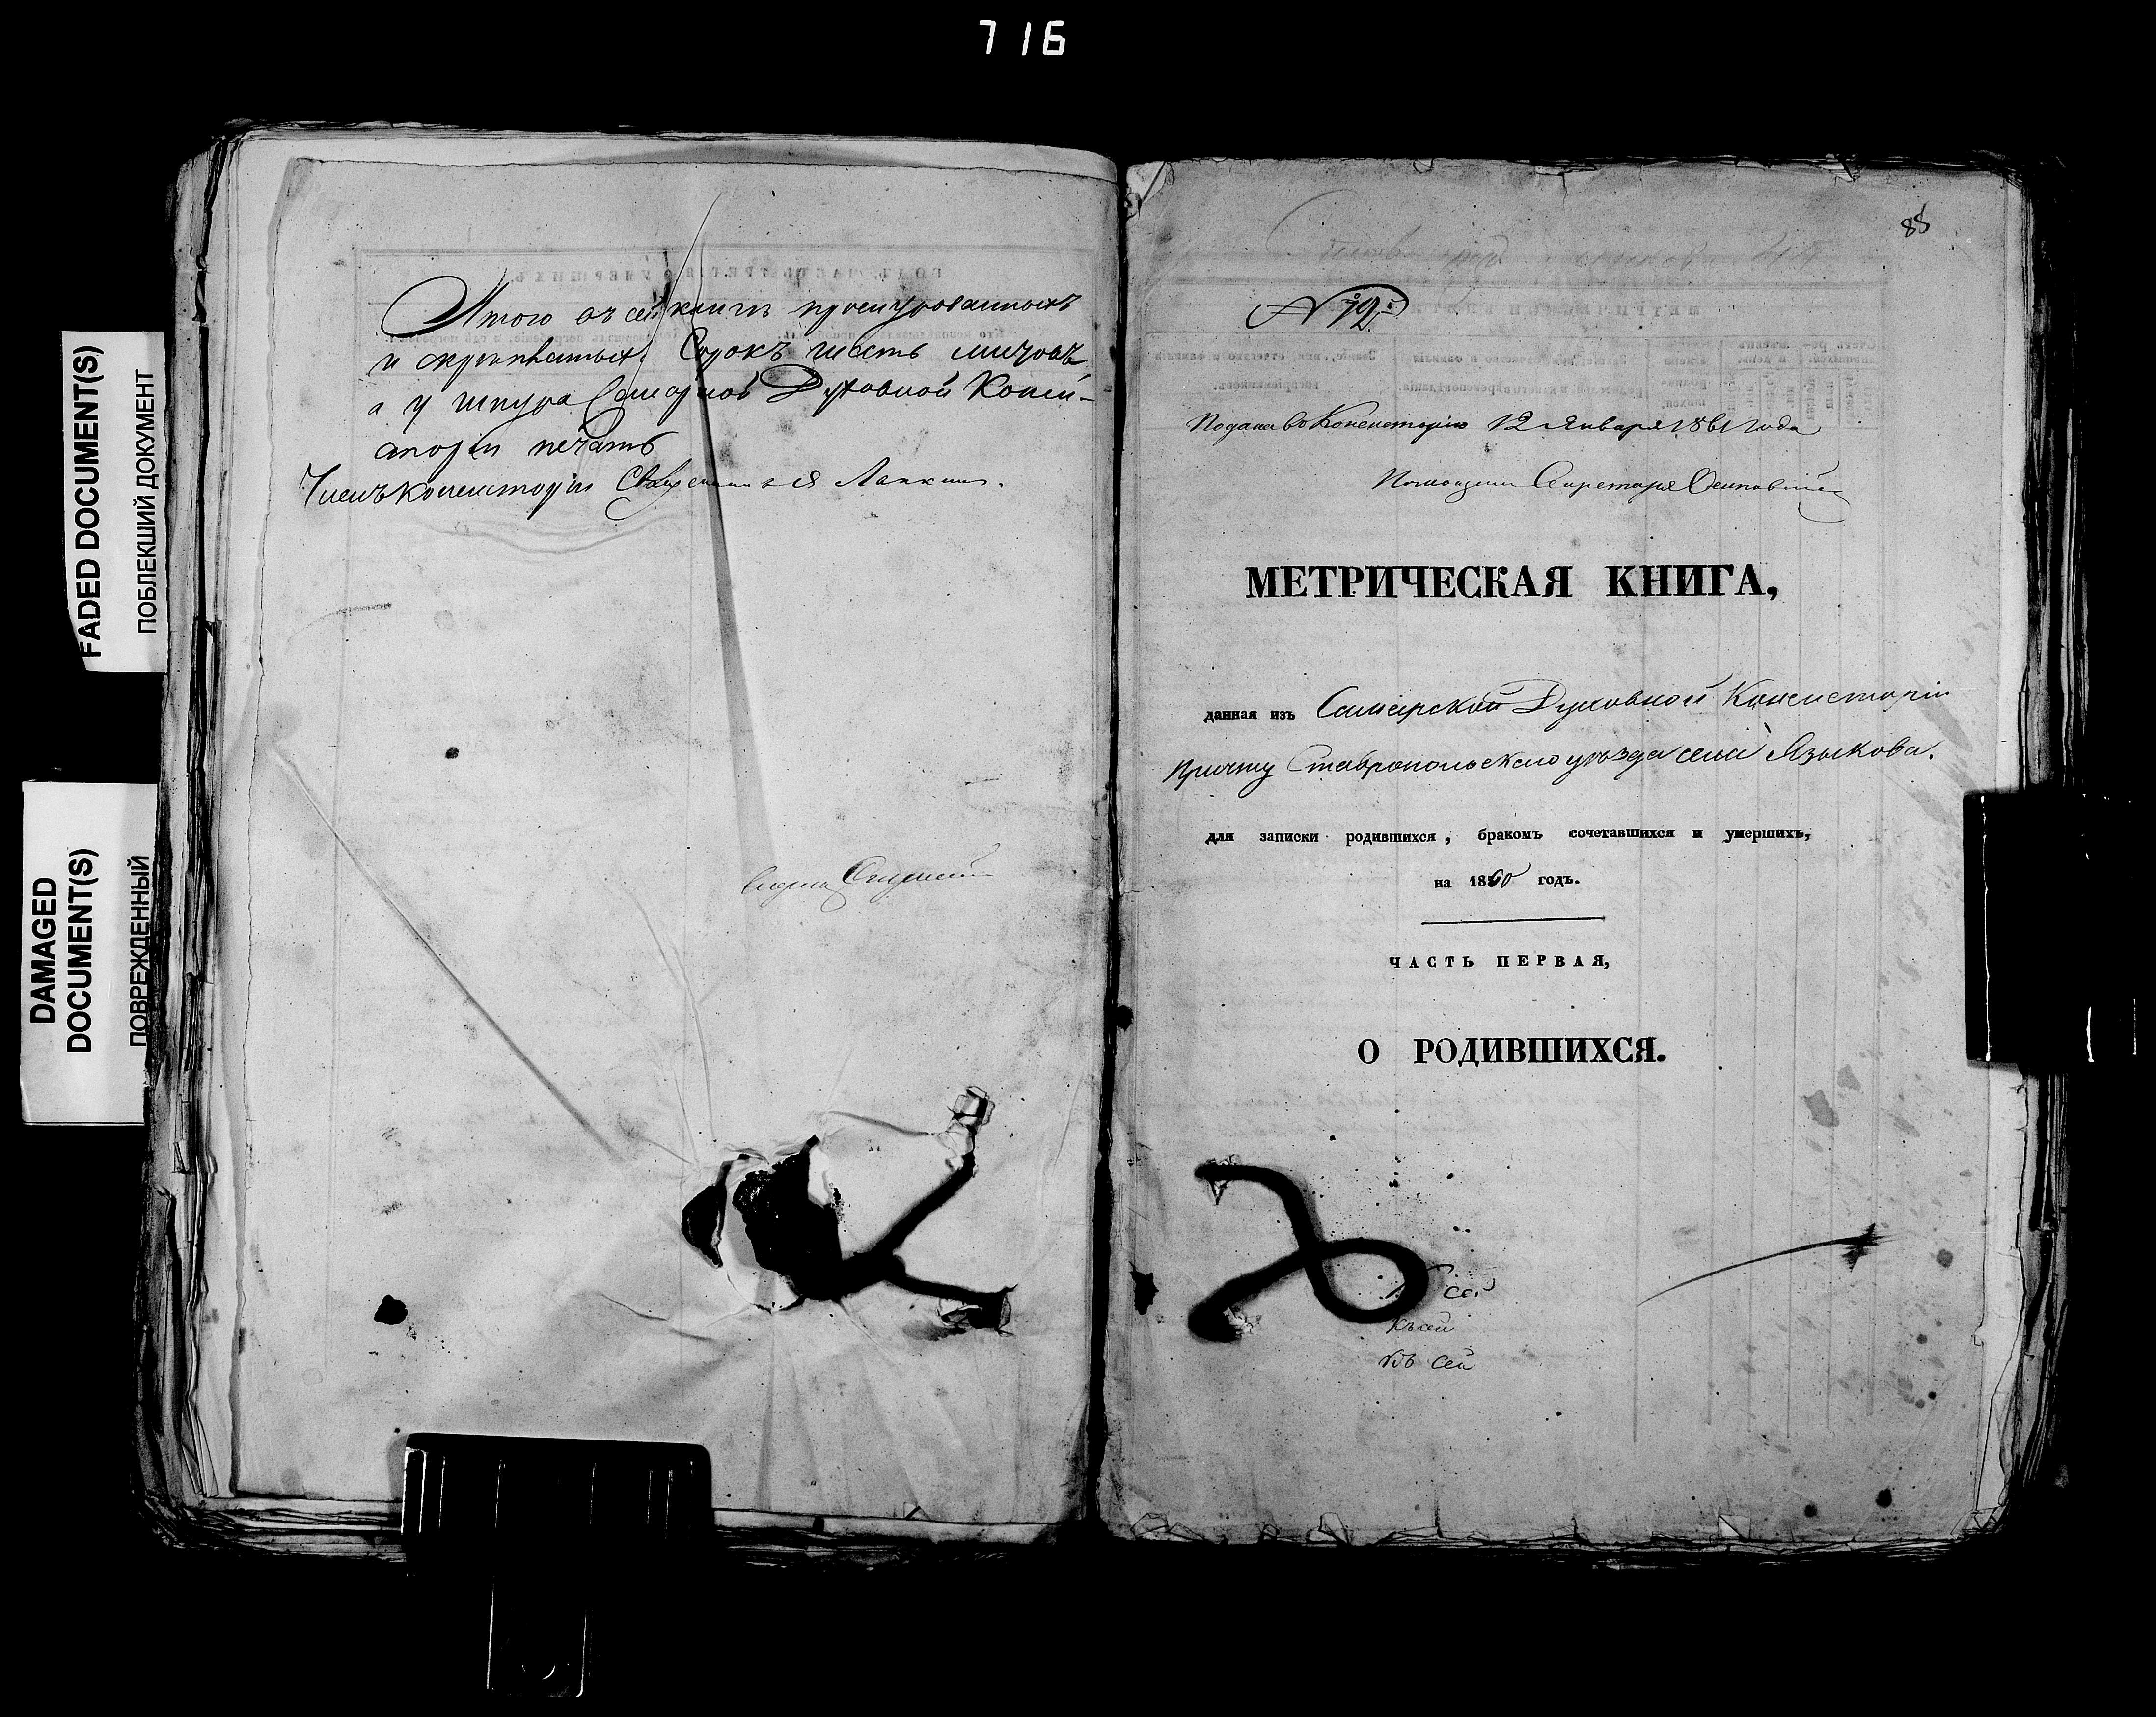 716
FADED DOCUMENT(S)
ПОБЛЕКШИЙ ДОКУМЕНТ
DAMAGED
DOCUMENT(S)
ПОВРЕЖДЕННЫЙ
Итого въ сей книгѣ прошнурованныхъ
и скрѣпленныхъ Сорокъ шесть листовъ,
а у шнура Самарской Духовной Конси-
сторіи печать
Членъ Консисторіи Священникъ
85
N 12.
Подана въ Консисторію 12 Января 1861 года
Помощникъ Секретаря
МЕТРИЧЕСКАЯ КНИГА,
данная изъ Самарской Духовной Консисторіи
Причту Ставропольскаго уѣзда села Языкова.
для записки родившихся, бракомъ сочетавшихся и умершихъ,
на 1860 годъ.
ЧАСТЬ ПЕРВАЯ,
О РОДИВШИХСЯ.
сей
Къ сей
Къ сей